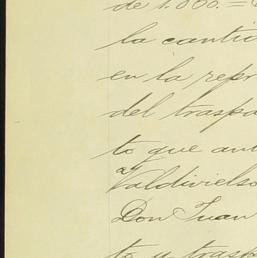 de 1.000.=
la cantid
en la repr
del traspa
to que ant
Valdivielso
Don Juan
to y trasp